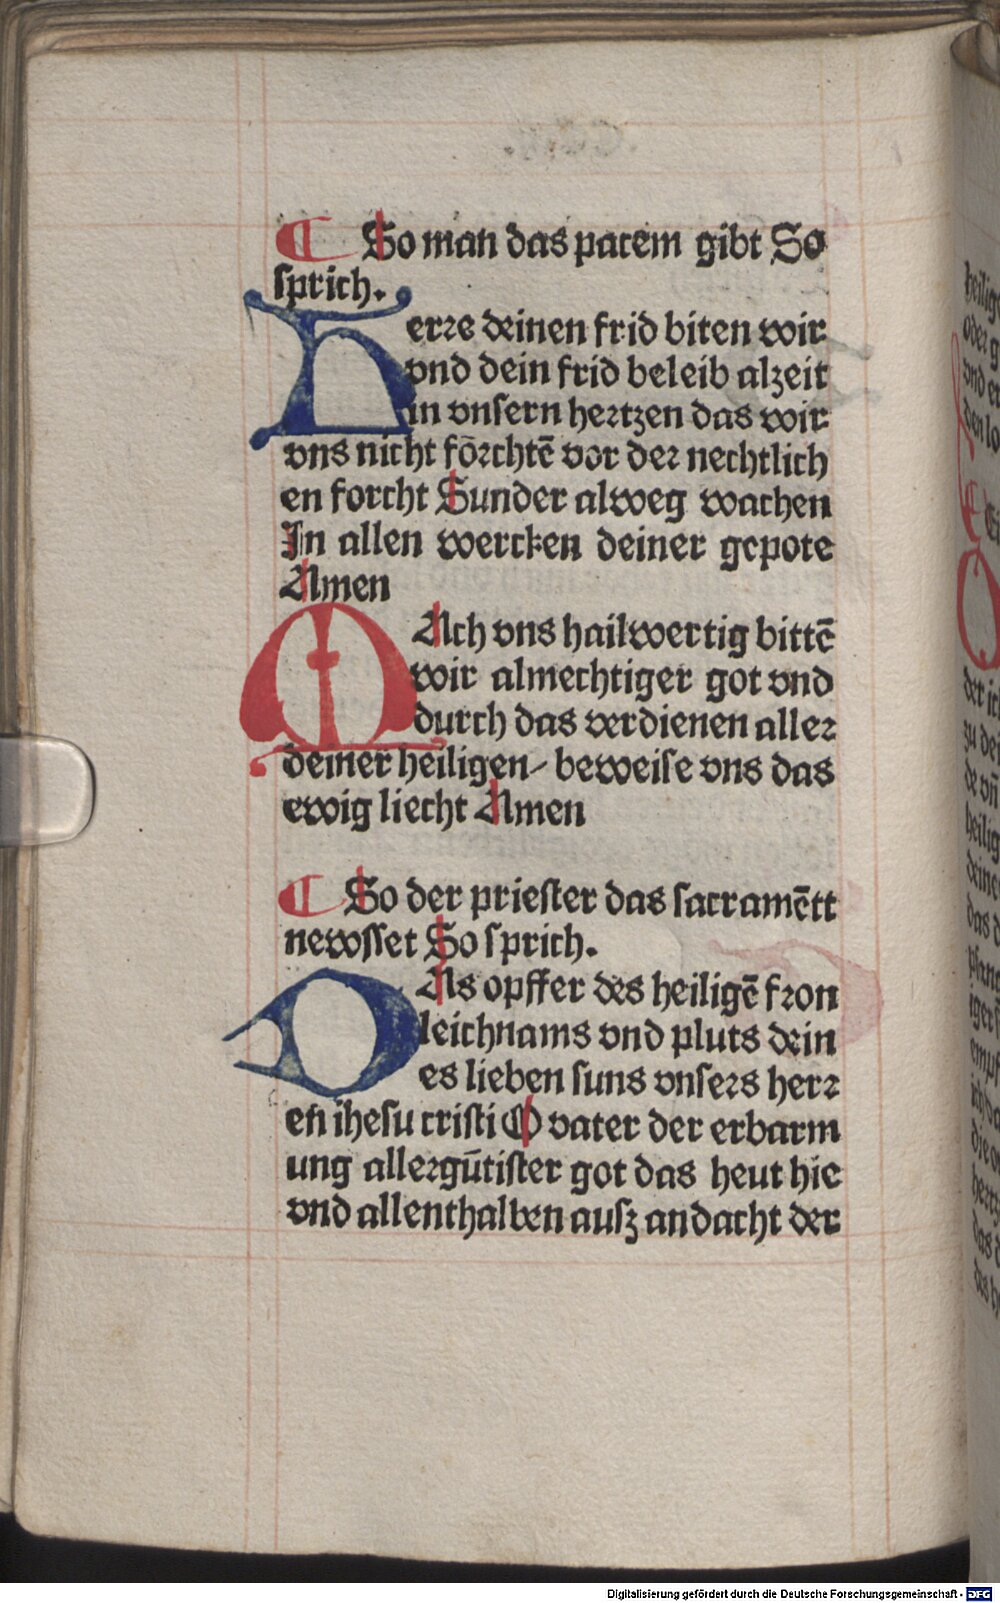 So man das pacem gibt So
sprich.
Herre deinen frid biten wir
vnd dein frid beleib alzeit
in vnsern hertzen das wir
vns nicht förchtē vor der nechtlich
en forcht Sunder alweg wachen
In allen wercken deiner gepote
Amen
MAch vns hailwertig bittē
wir almechtiger got vnd
durch das verdienen aller
deiner heiligen/ beweise vns das
ewig liecht Amen
So der priester das sacramētt
newsset So sprich.
DAs opffer des heiligē fron
leichnams vnd pluts dein
es lieben suns vnsers herr
en ihesu cristi O vater der erbarm
ung allergütister got das heut hie
vnd allenthalben ausz andacht der
Digitalisierung gefördert durch die Deutsche Forschungsgemeinschaft - DFG